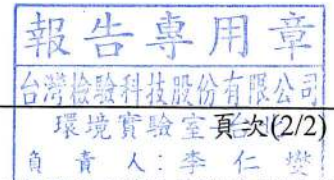 報告專用章
台灣檢驗科技股份有限公司
環境實驗室
頁次(2/2)
負責人：李仁燮